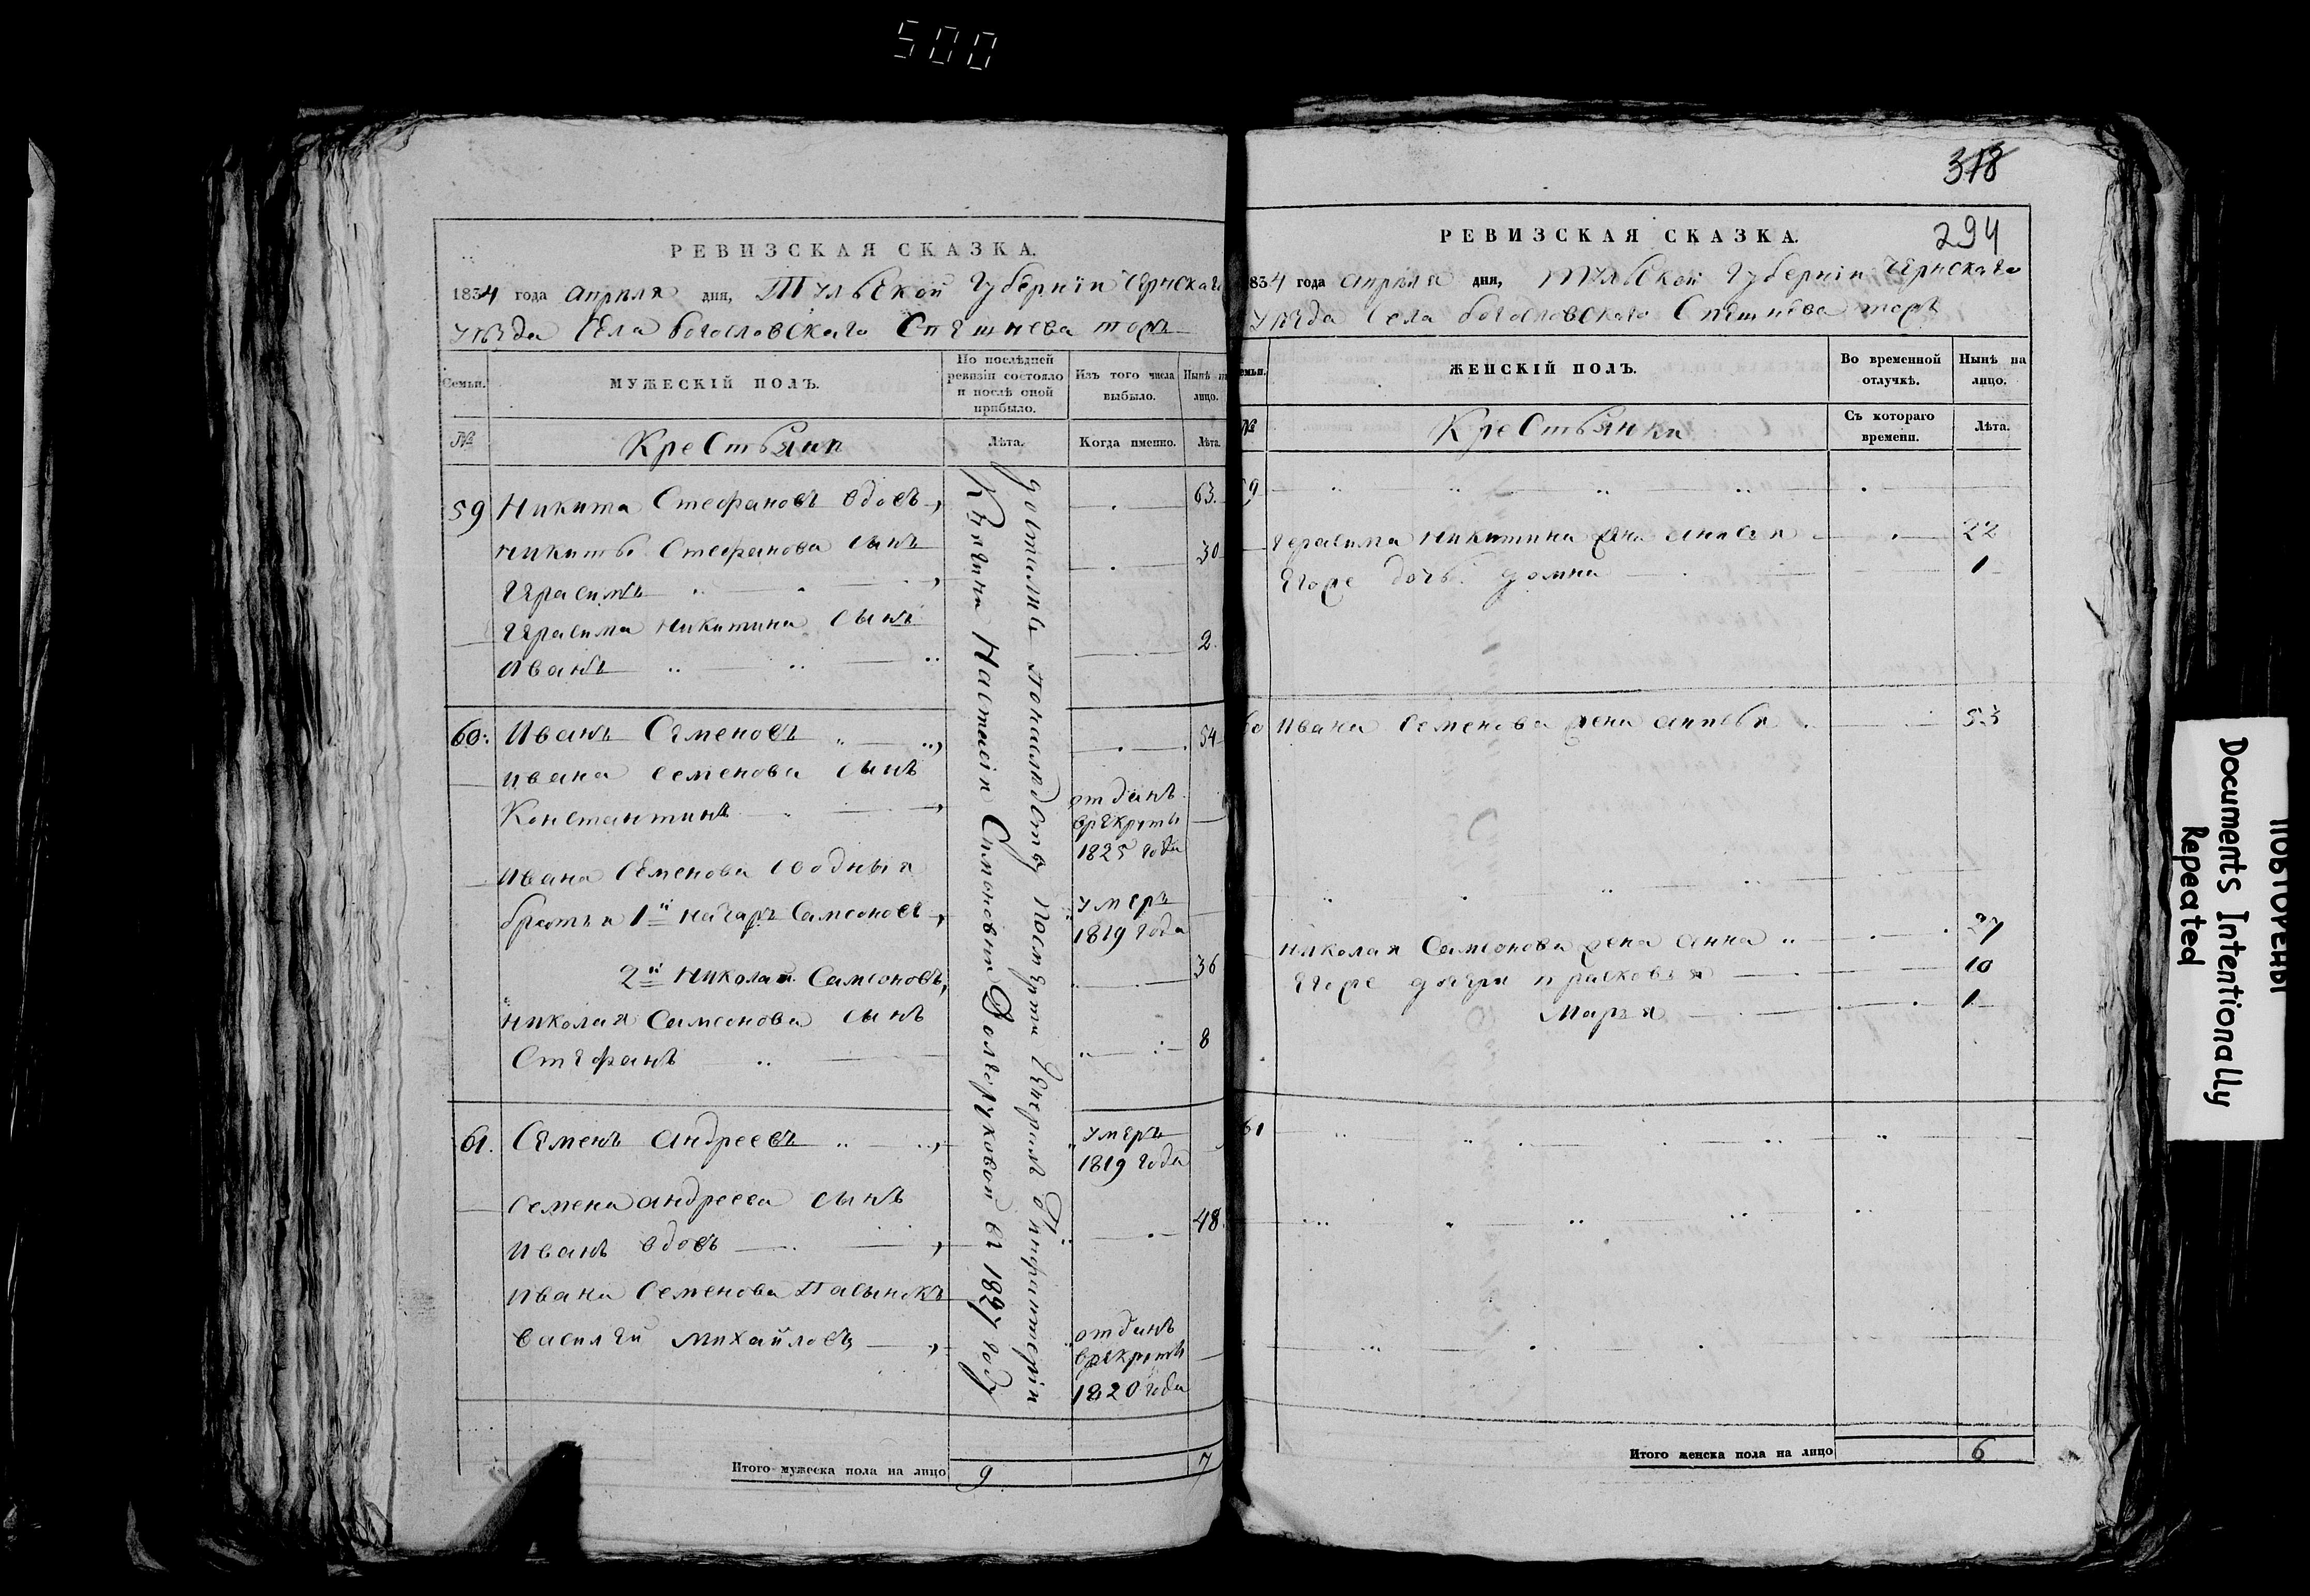 500
РЕВИЗСКАЯ СКАЗКА.
1834 года апреля дня, Тульской Губернiи Чернскаго
уезда Села богословскаго Спешнева тожъ
Семьи.
МУЖЕСКІЙ ПОЛЪ.
По послѣдней ревизіи состояло и послѣ оной прибыло.
Изъ того числа выбыло.
Нынѣ на лицо.
№
Крестьяне
Лѣта.
Когда именно.
Лѣта.
59 Никита Стефановъ вдовъ 63.
Никиты Стефанова сынъ 30
Герасимъ
Герасима Никитина сынъ 2.
Иванъ
60. Иванъ Семеновъ 54
Ивана Семенова сынъ
Константинъ отданъ
врекруты
1825 года
Ивана Семенова
братья 1й Самсоновъ умеръ
1819 года
2й Николай Самсоновъ, 36
Николая Самсонова сынъ
Стефанъ 8
61. Семенъ андреевъ умеръ
1819 года
Семена андреева сынъ
Иванъ вдовъ 48.
Ивана Семенова Пасынокъ
василей михайловъ отданъ
врекруты
1820 года
достались понаследству После Генерала Инфантерiи
Княгини Настасiи Симоновны Долгоруковой въ 1827 году
Итого мужеска пола на лицо 9 7
318
294
РЕВИЗСКАЯ СКАЗКА.
1834 года апреля дня, Тульской Губернiи Чернскаго
уезда Села богословского Спешнева тожъ
Семьи.
ЖЕНСКІЙ ПОЛЪ.
Во временной отлучкѣ.
Нынѣ на лицо.
№
Крестьянки
Съ котораго времени.
Лѣта.
59
Герасима Никитина жена анисья 22
Егоже дочь домна 1
60 Ивана Семенова жена 53
Николая Самсонова жена анна
Егоже дочери прасковья 10
Марья 1
61
Итого женска пола на лицо 6
ПОВТОРЕНЫ
Documents Intentionally
Repeated